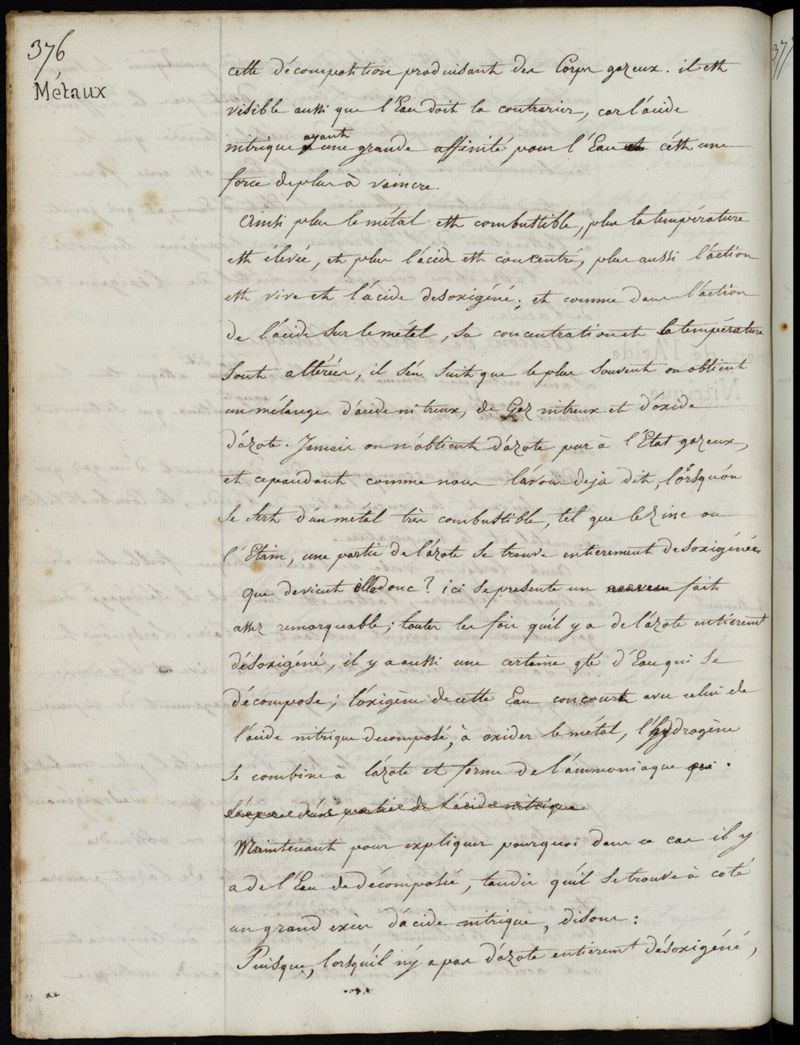 376
Métaux
cette décomposition produisant des Corps gazeux. il est
visible aussi que l'Eau doit la contrarier, car l'acide
nitrique ayant une grande affinité pour l'Eau c'est une
force de plus à vaincre.
Ainsi plus le métal est combustible, plus la température
est élevée, et plus l'acide est concentré, plus aussi l'action
est vive et l'acide desoxigéné; et comme dans l'action
de l'acide sur le métal, sa concentration et la température
sont altérées, il s'en suit que le plus souvent on obtient
un mélange d'acide nitreux, de Gaz nitreux et d'oxide
d'azote. Jamais on n'obtient d'azote pur à l'Etat gazeux,
et cependant comme nous l'avons deja dit, lorsqu'on
se sert d'un métal très combustible, tel que le zinc ou
l'Etain, une partie de l'azote se trouve entierement desoxigénée
que devient elle donc? ici se presente un nouveau fait
assez remarquable; toutes les fois qu'il y a de l'azote entierem.t
désoxigéné, il y a aussi une certaine qté d'Eau qui se
décompose; l'oxigène de cette Eau concourt avec celui de
l'acide nitrique decomposé, à oxider le métal, l'hydrogène
se combine à l'azote et forme de l'ammoniaque qui.
s'empare d'une partie de l'acide nitrique
Maintenant pour expliquer pourquoi dans ce cas il y
a de l'Eau de décomposée, tandis qu'il se trouve à coté
un grand excès d'acide nitrique, disons:
Puisque, lorsqu'il n'y a pas d'azote entierem.t désoxigéné,
377